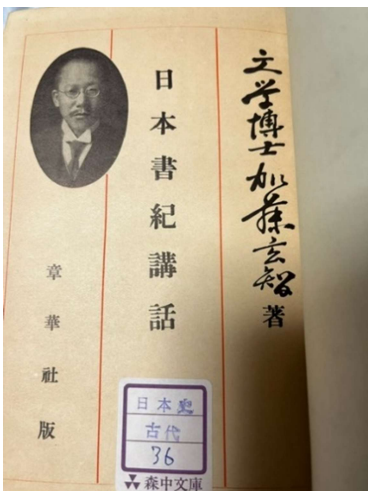 文学博士加藤玄智著
日本書紀講話
章華社版
日本史
古代
36
森中文庫